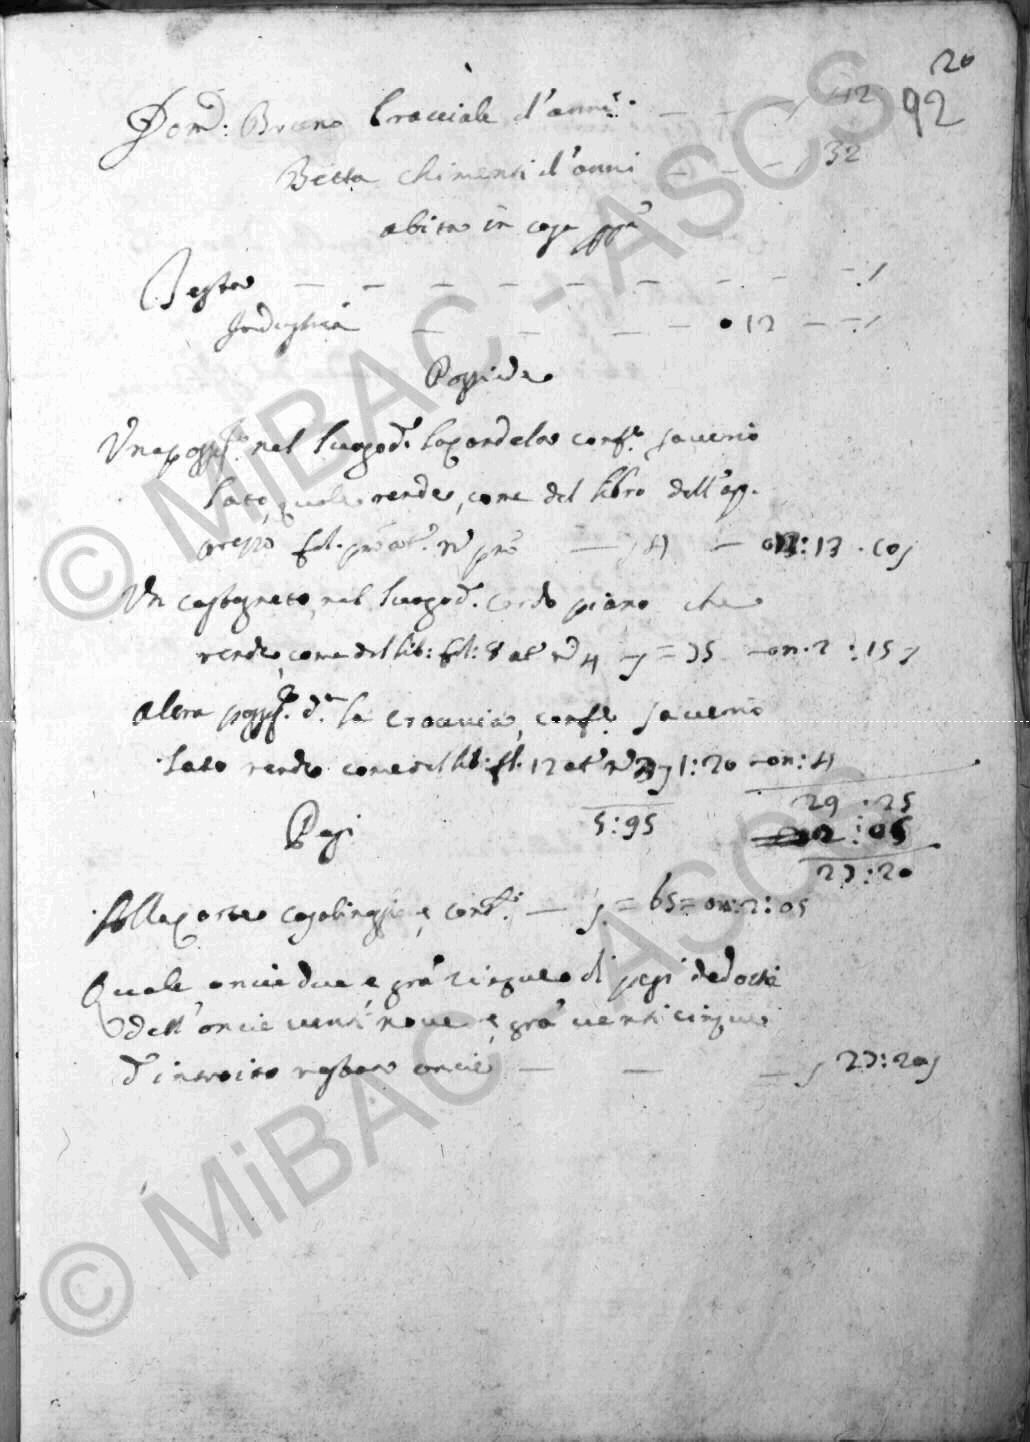 20
92
Dom: Bruno bracciale d'anni — — — 42
Betta chimenti d'anni — — — 32
abita in casa ppa
Testa — — — — — — — — :/
Indust͞ria — — — — 12 — :/
Possiede
Una possess. nel luogo d. confe. saverio
lato, quale rende, come del libro dell'ap.
prezzo fol. n° pmo — 4 — on: 13 . 10
Un castagneto nel luogo d. cordo piano che
rende, come del lib: fol: 8 at n° 4 = 75 on. 2 : 15
altra possess. d.ta la croccia, confe. saverio
lato rende come del lib: fol. 12 at n° 1:20 on: 4
29 : 25
Pesi 5:95 2 : 05
27:20
Sopra casalinaggio, e cont. — = 65 = on: 2: 05
Quale oncie due e gra cinque di pesi dedotti
dall'oncie venti nove e gra venti cinque
d'introito restano oncie — — — 27:20
© MiBAC - ASCS
© MiBAC - ASCS